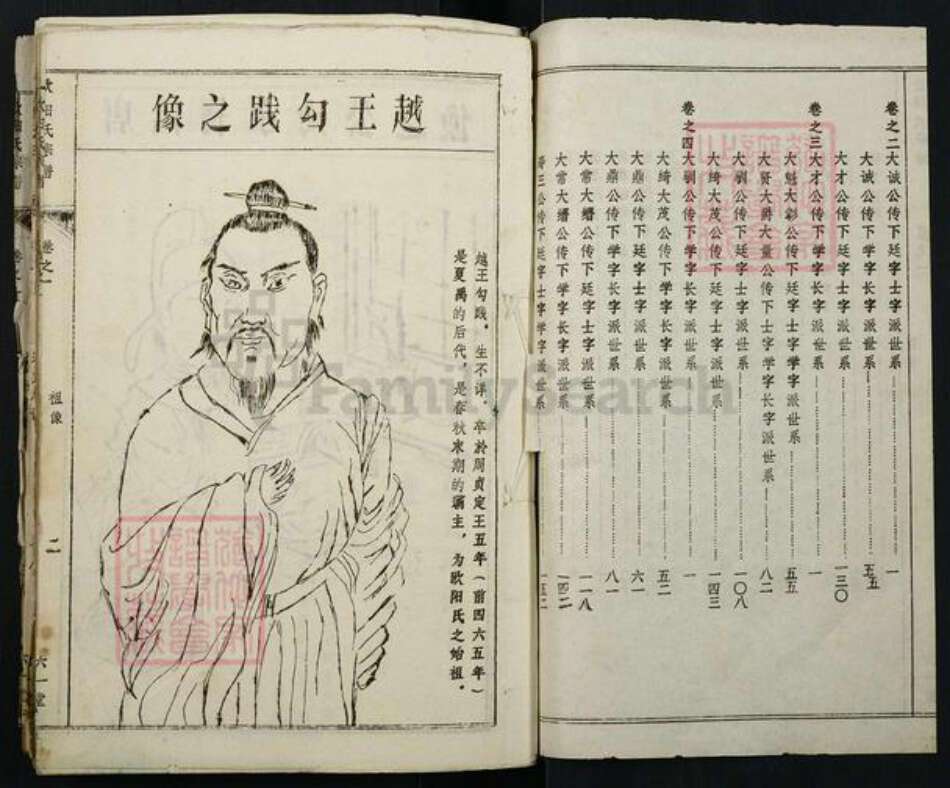 卷之二大诚公传下廷字士字派世系……一
大诚公传下学字长字派世系……五五
大才公传下廷字士字派世系……一三〇
卷之三大才公传下学字长字派世系……一
大魁大彩公传下廷字士字学字派世系……五五
大贤大爵大量公传下士字学字长字派世系……八二
大驯公传下廷字士字派世系……一〇八
大绮大茂公传下廷字士字派世系……一四三
卷之四大驯公传下学字长字派世系……一
大绮大茂公传下学字长字派世系……五二
大鼎公传下廷字士字派世系……六一
大鼎公传下学字长字派世系……八一
大常大缙公传下廷字士字派世系……一一八
大常大缙公传下学字长字派世系……一四二
三公传下廷字士字学字派世系……一五二
越王勾践之像
越王勾践。生不详，卒於周贞定王五年（前四六五年）
是夏禹的后代，是春秋末期的霸主，为欧阳氏之始祖。
阳氏宗谱 卷之一 祖像 二 六一堂
FamilySearch